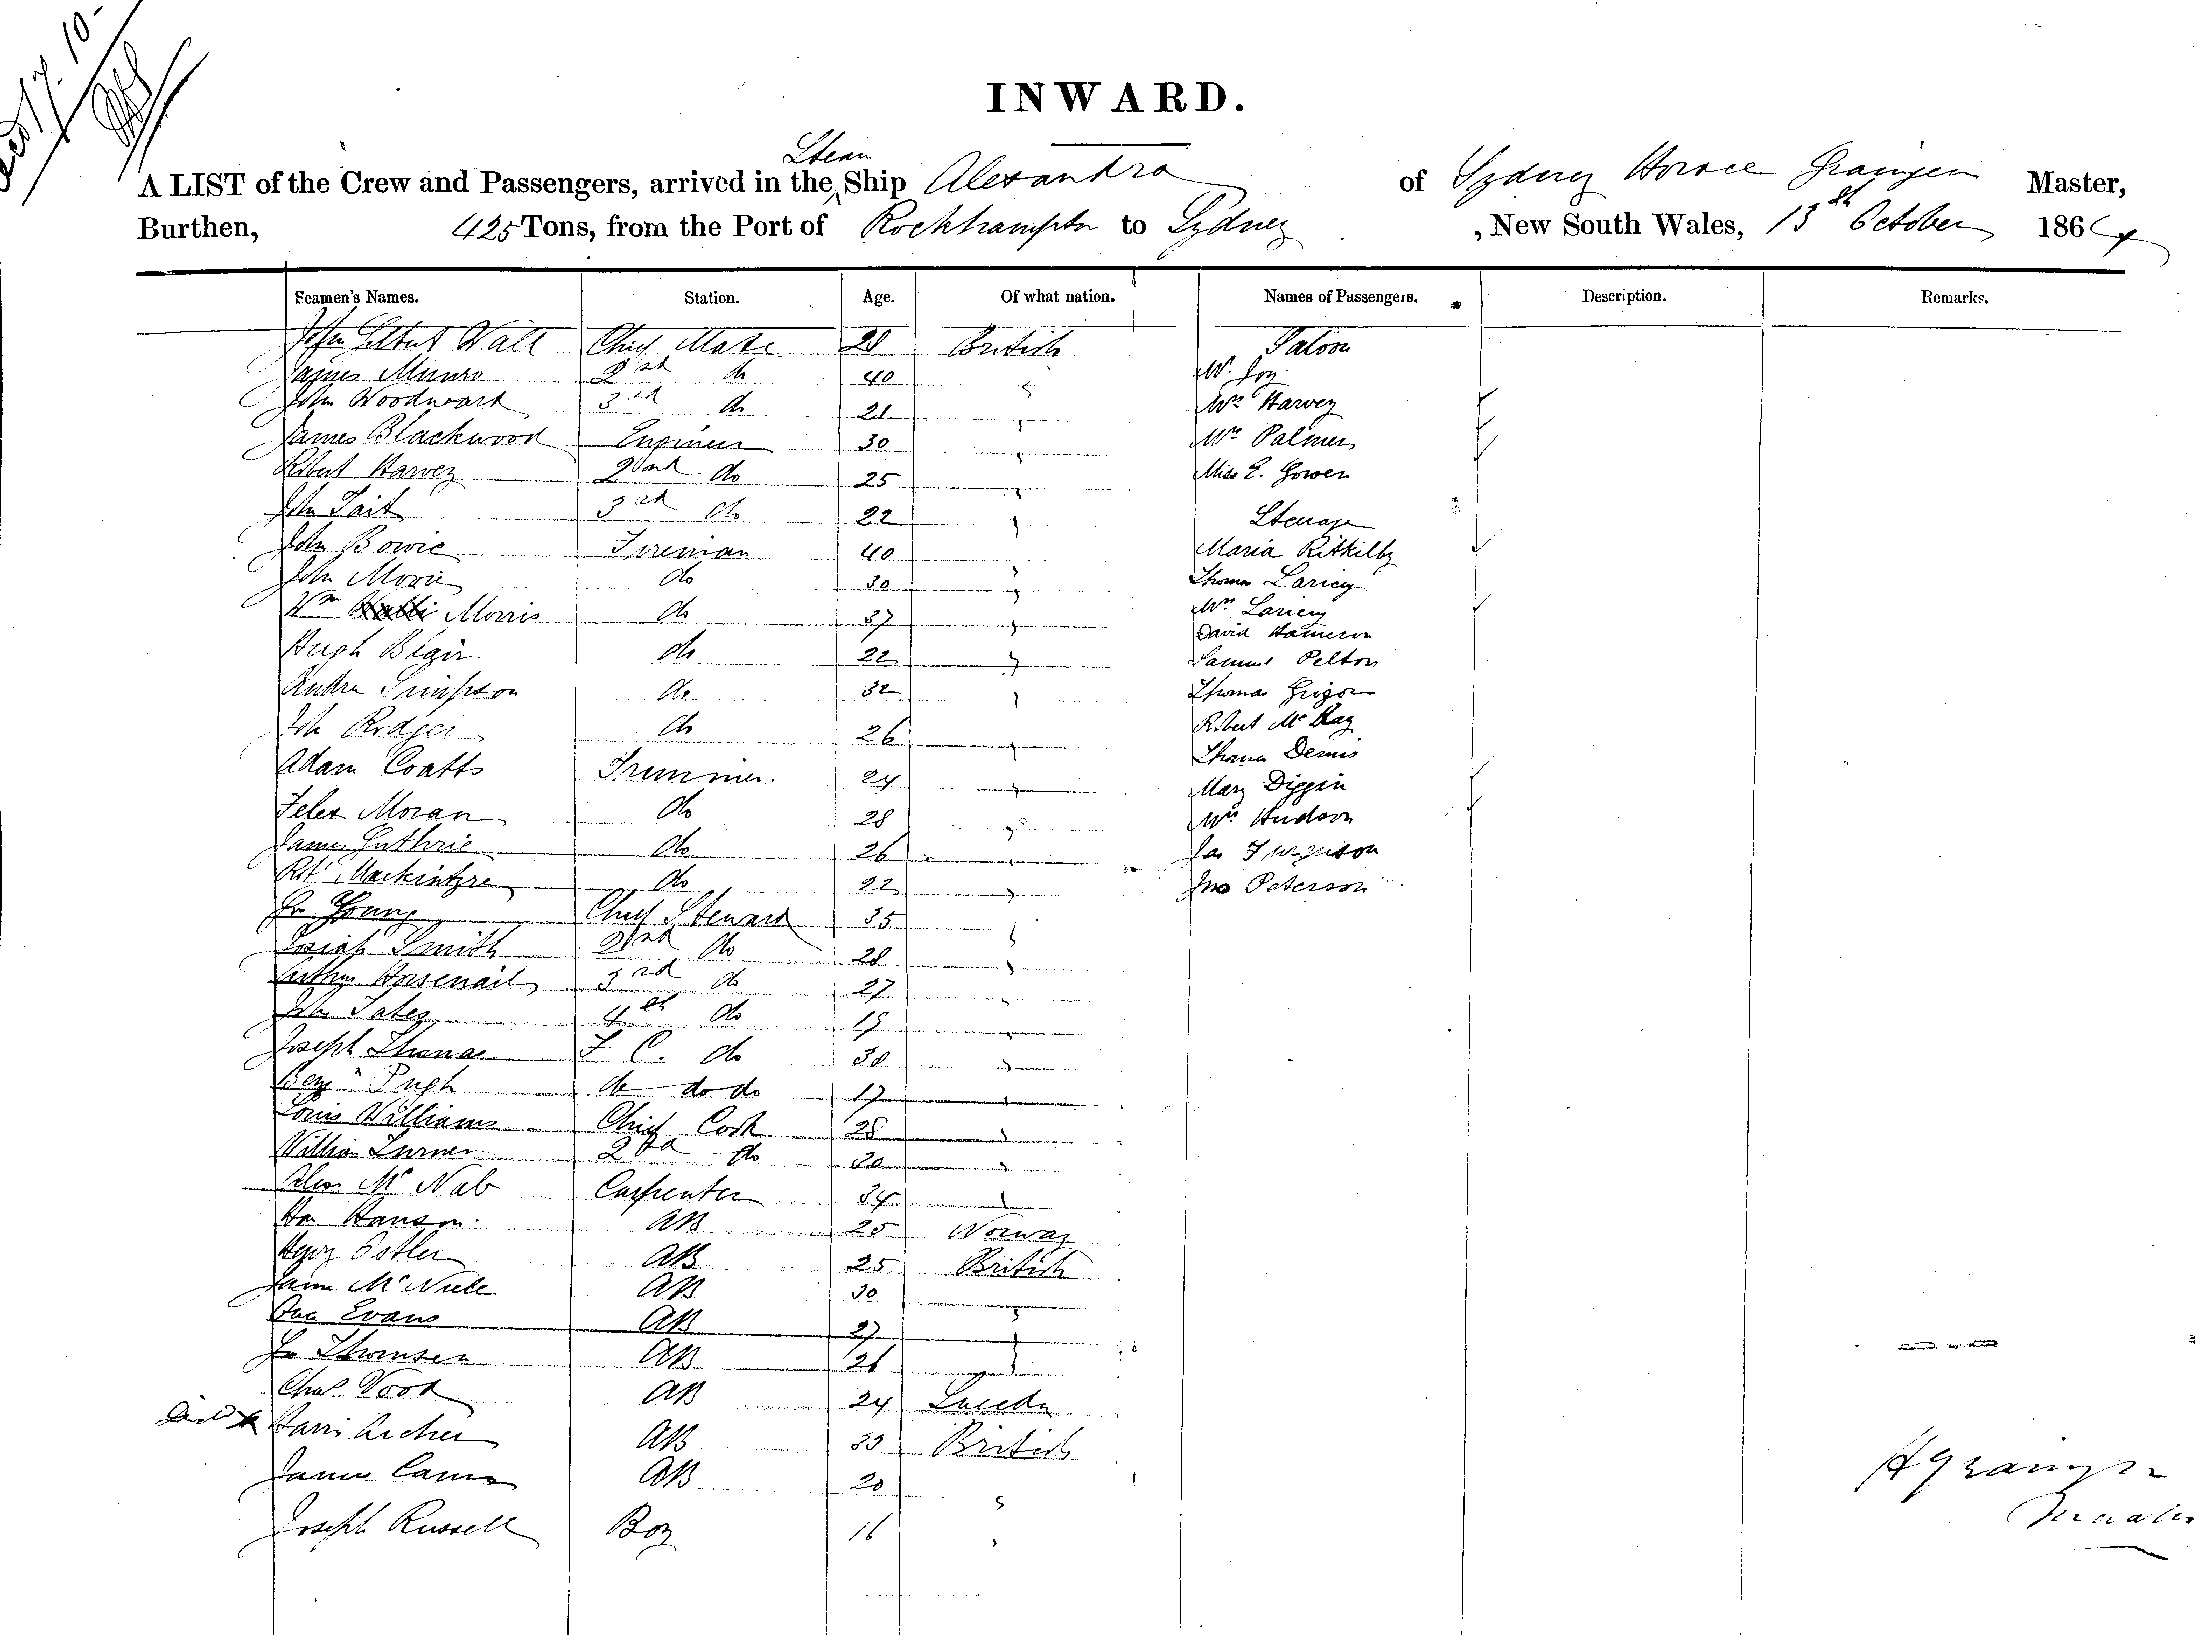 INWARD.
A LIST of the Crew and Passengers, arrived in the Steam Ship Alexandra of Sydney Horace Grainger Master,
Burthen, 425 Tons, from the Port of Rockhampton to Sydney, New South Wales, 13th October 1864
Seamen's Names. Station. Age. Of what nation. Names of Passengers. Description. Remarks.
John Wall Chief Mate 28 British Saloon
James Munro 2nd do 40 " Mr. Joy
John Woodward 3rd do 21 " Mrs Harvey
James Blackwood Engineer 30 " Mrs Palmer
Robert Harvey 2nd do 25 " Miss E. Gowen
John Tait 3rd do 22 " Steerage
John Bowie Fireman 40 " Maria
John Movie do 30 " Thomas Laricy
Wm Morris do 37 " Mrs Laricy
David Hameron
Hugh Blair do 22 " Samuel Pelton
Andrew Simpson do 32 " Thomas Grigor
John Rodger do 26 " Robert McKay
Thomas Dennis
Adam Coatts Trimmer 24 " Mary Diggin
Peter Moran do 28 " Mrs Hudson
James Guthrie do 26 " Jas Furguson
Robt Mackintyre do 22 " Jno Peterson
Jno Young Chief Steward 35 "
Josiah Smith 2nd do 28 "
Arthur Horsenail 3rd do 27 "
John 4th do "
Joseph Thomas F C. do 30 "
Benjn Pugh do do do 17 "
Louis Williams Chief Cook 28 "
William Turner 2nd do "
Alex McNab Carpenter 34 "
Hanson AB 25 Norway
Ostler AB 25 British
James McNiele AB 30 "
Evans AB 27 "
Jno Thomsen AB 26 "
Chas Wood AB 24 Sweden
Harri Archer AB 33 British
James AB 20 "
Joseph Russell Boy 16 "
H Grainger
Master